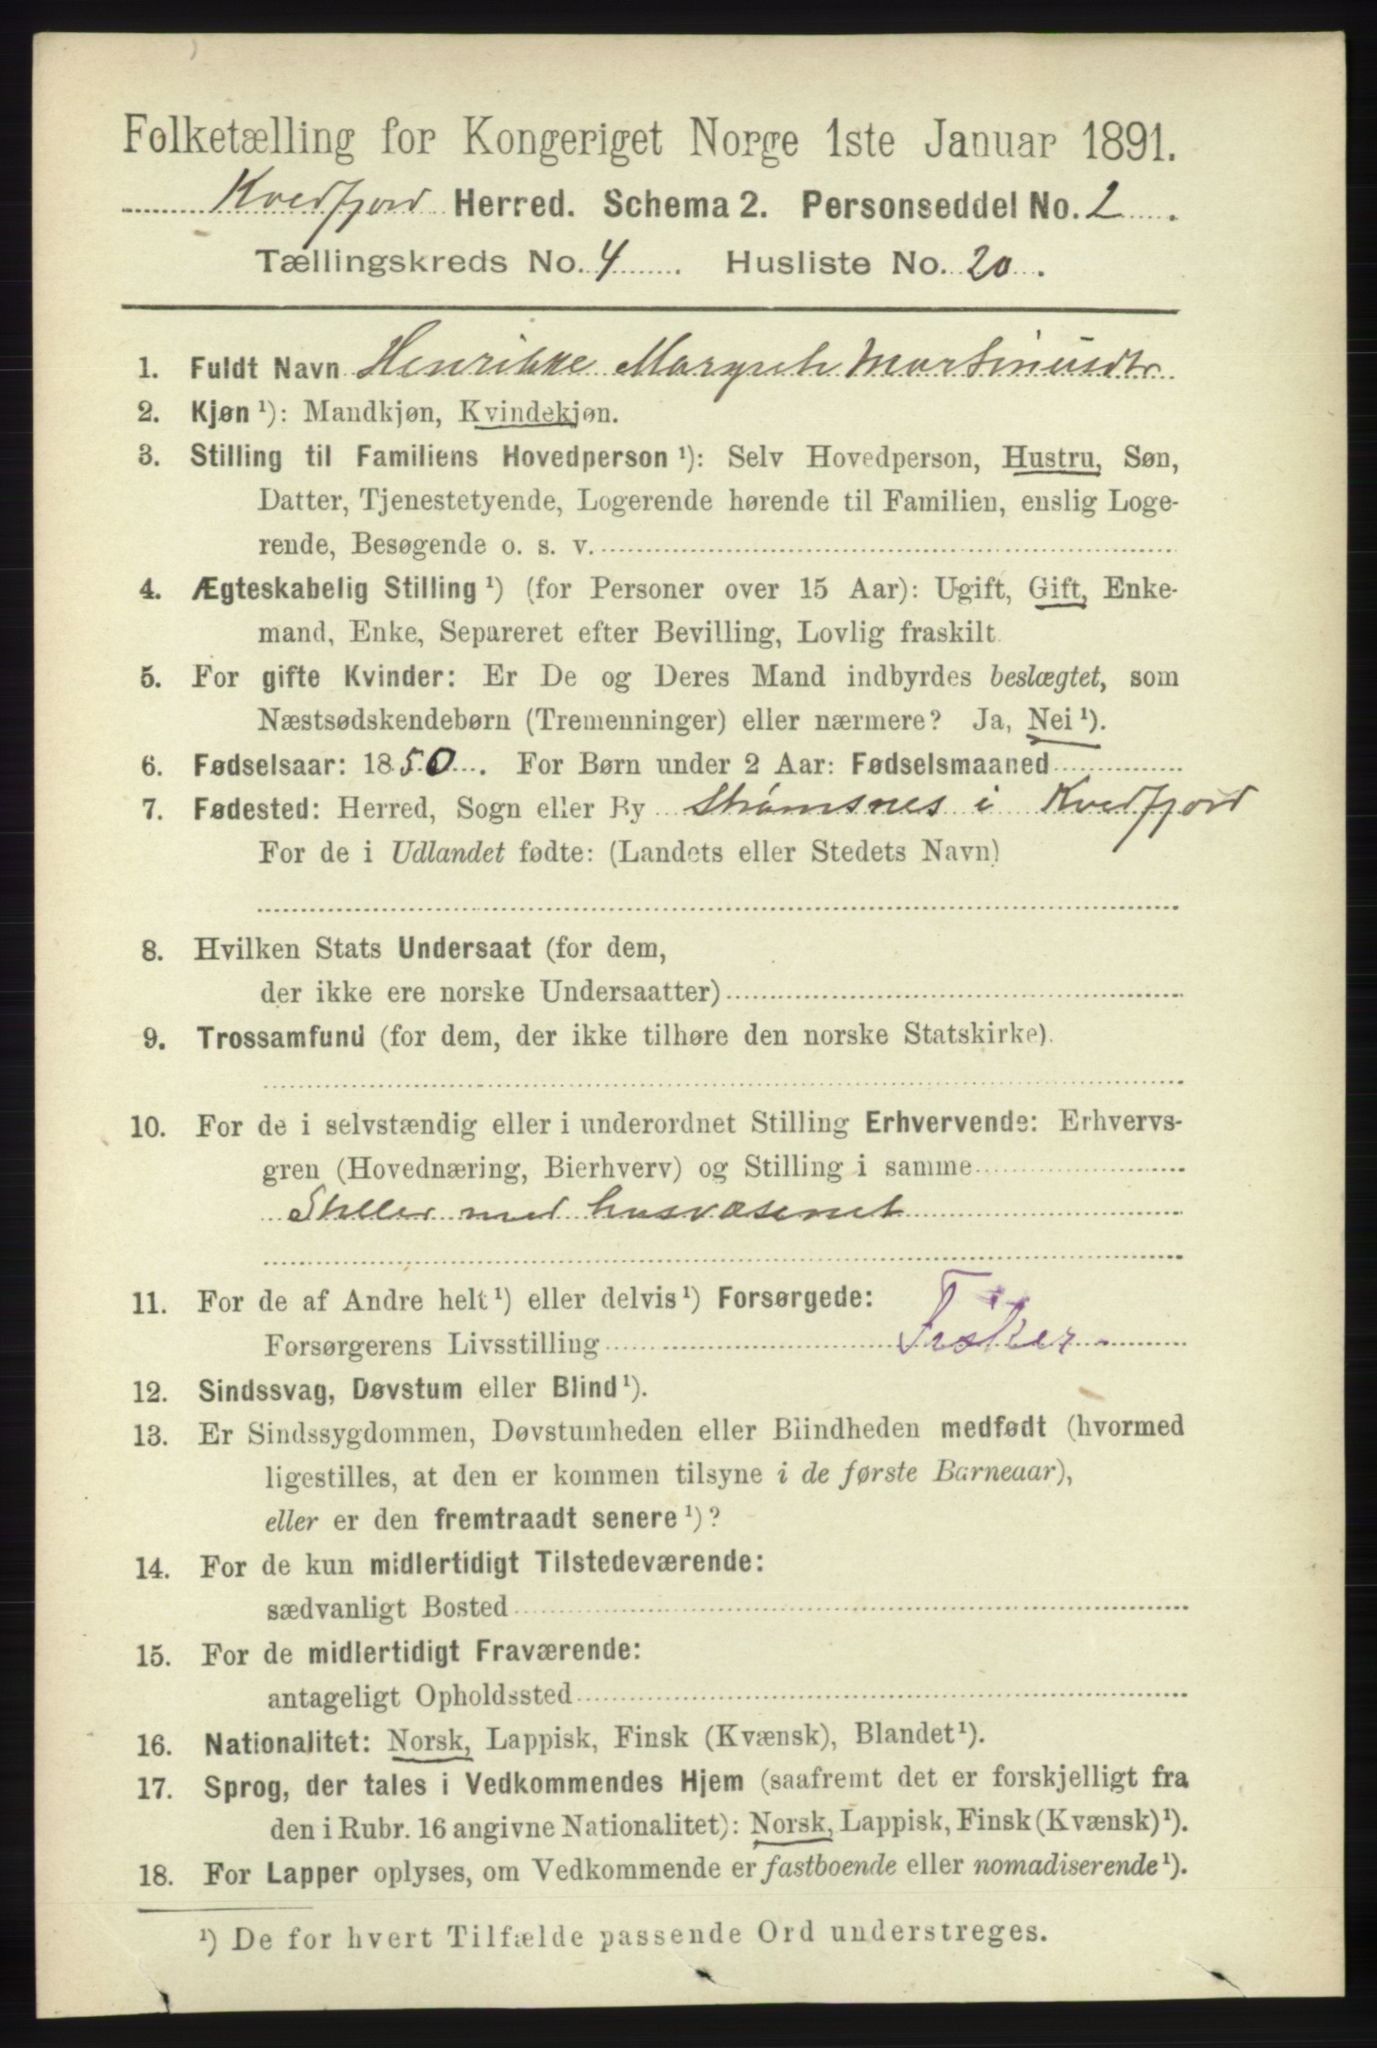 Folketælling for Kongeriget Norge 1ste Januar 1891.
Kvedfjord Herred. Schema 2. Personseddel No. 2
Tællingskreds No. 4 Husliste No. 20.
1. Fuldt Navn Henrikke Margreth Martinusdtr
2. Kjøn ¹): Mandkjøn, Kvindekjøn.
3. Stilling til Familiens Hovedperson ¹): Selv Hovedperson, Hustru, Søn,
Datter, Tjenestetyende, Logerende hørende til Familien, enslig Loge-
rende, Besøgende o. s. v.
4. Ægteskabelig Stilling ¹) (for Personer over 15 Aar): Ugift, Gift, Enke-
mand, Enke, Separeret efter Bevilling, Lovlig fraskilt
5. For gifte Kvinder: Er De og Deres Mand indbyrdes beslægtet, som
Næstsødskendebørn (Tremenninger) eller nærmere? Ja, Nei ¹).
6. Fødselsaar: 1850. For Børn under 2 Aar: Fødselsmaaned
7. Fødested: Herred, Sogn eller By Strømsnes i Kvedfjord
For de i Udlandet fødte: (Landets eller Stedets Navn)
8. Hvilken Stats Undersaat (for dem,
der ikke ere norske Undersaatter)
9. Trossamfund (for dem, der ikke tilhøre den norske Statskirke).
10. For de i selvstændig eller i underordnet Stilling Erhvervende: Erhvervs-
gren (Hovednæring, Bierhverv) og Stilling i samme
Steller med husvæsenet
11. For de af Andre helt ¹) eller delvis ¹) Forsørgede:
Forsørgerens Livsstilling Fisker
12. Sindssvag, Døvstum eller Blind ¹).
13. Er Sindssygdommen, Døvstumheden eller Blindheden medfødt (hvormed
ligestilles, at den er kommen tilsyne i de første Barneaar),
eller er den fremtraadt senere ¹)?
14. For de kun midlertidigt Tilstedeværende:
sædvanligt Bosted
15. For de midlertidigt Fraværende:
antageligt Opholdssted
16. Nationalitet: Norsk, Lappisk, Finsk (Kvænsk), Blandet ¹).
17. Sprog, der tales i Vedkommendes Hjem (saafremt det er forskjelligt fra
den i Rubr. 16 angivne Nationalitet): Norsk, Lappisk, Finsk (Kvænsk) ¹).
18. For Lapper oplyses, om Vedkommende er fastboende eller nomadiserende ¹).
¹) De for hvert Tilfælde passende Ord understreges.